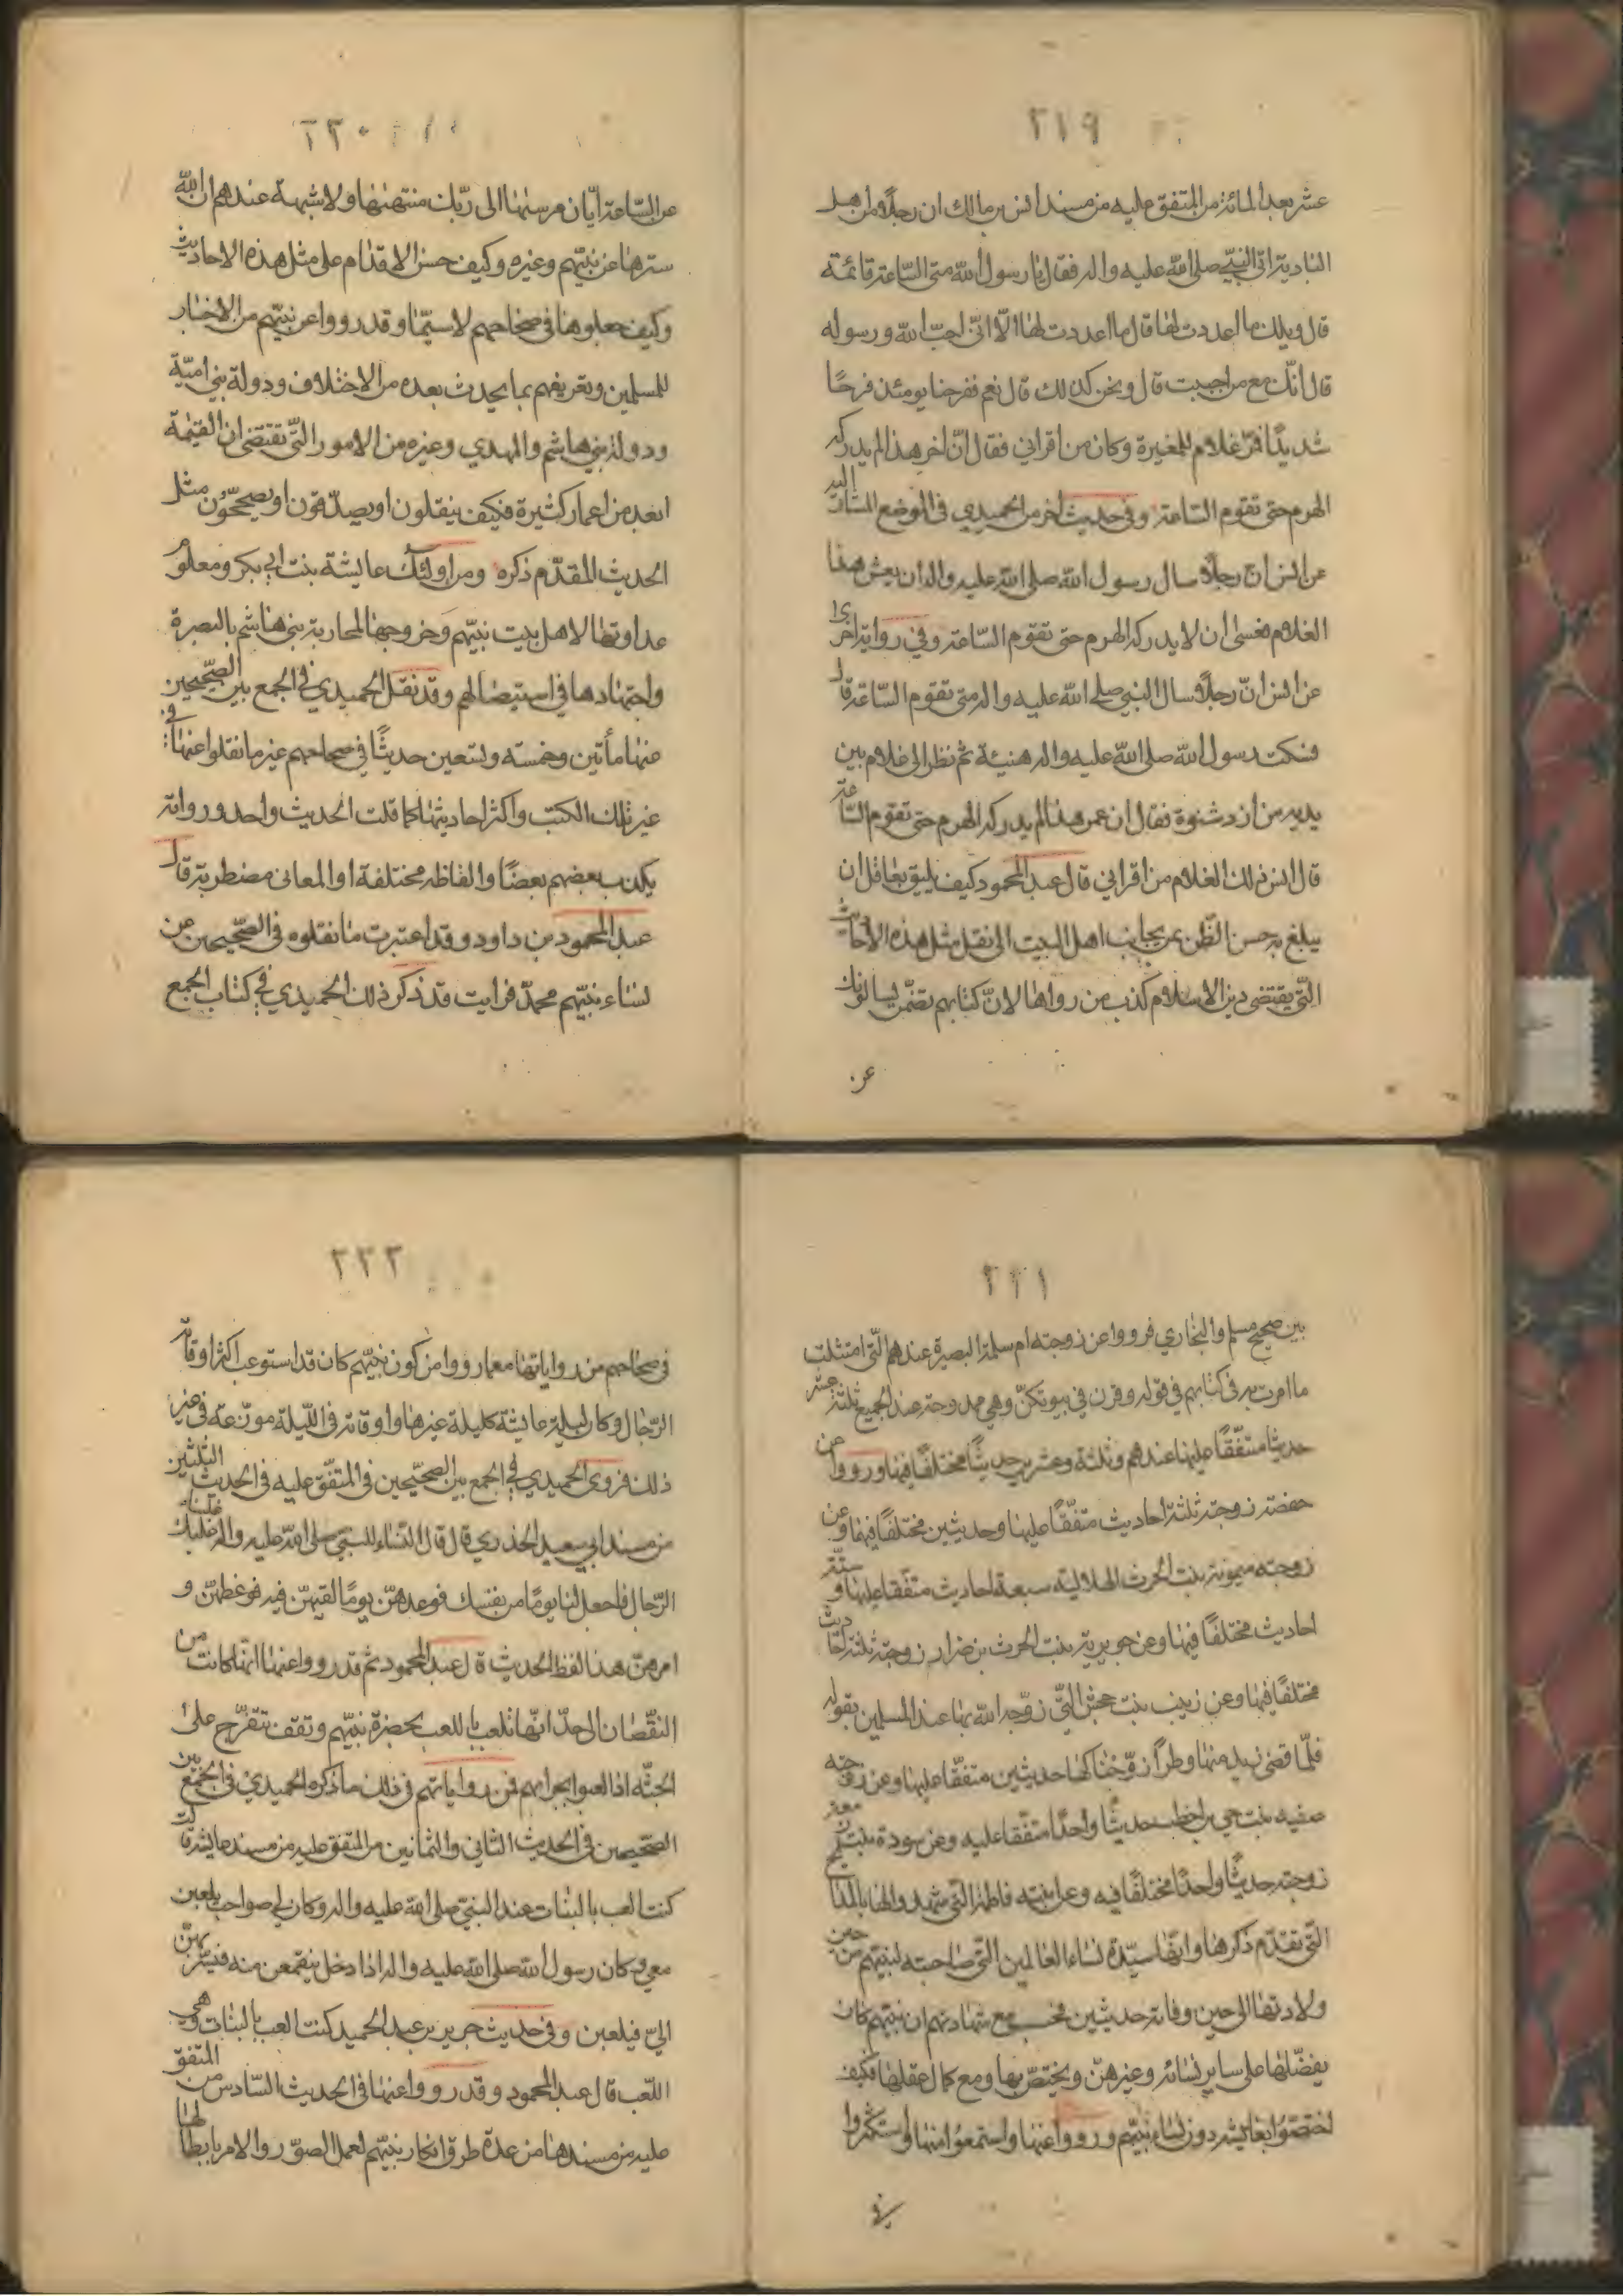 ٢١٩
عشر بعد المائة من المتفق عليه من مسند انس بن مالك ان رجلاً من اهل
البادية اتى النبي صلى الله عليه واله فقال يا رسول الله متى الساعة قائمة
قال ويلك ما اعددت لها قال ما اعددت لها الّا انّي احبّ الله ورسوله
قال انّك مع من احببت قال ونحن كذلك قال نعم ففرحنا يومئذ فرحًا
شديدًا فمرّ غلام للمغيرة وكان من اقراني فقال انّ اخر هذا لم يدركه
الهرم حتى تقوم الساعة وفي حديث اخر من الحميدي في الموضع المشار اليه
عن انس ان رجلاً سال رسول الله صلى الله عليه واله ان يعش هذا
الغلام فعسى ان لا يدركه الهرم حتى تقوم الساعة وفي رواية اخرى
عن انس انّ رجلاً سال النبي صلى الله عليه واله متى تقوم السّاعة قال
فسكت رسول الله صلى الله عليه واله هنيئة ثم نظر الى غلام بين
يديه من ازد شنوة فقال ان عمر هذا لم يدركه الهرم حتى تقوم الساعة
قال انس ذلك الغلام من اقراني قال عبد المحمود كيف يليق بعاقل ان
يبلغ به حسن الظّن بمن يجانب اهل البيت الى نقل مثل هذه الاحاديث
التّي يقتضي دين الاسلام كذب من رواها لانّ كتابهم يتضمّن يسالونك
عن
٢٢٠
عن السّاعة ايّان مرسيها الى ربّك منتهيها ولا شبهة عندهم ان الله
سترها عن نبيّهم وغيره وكيف حسن الاقدام على مثل هذه الاحاديث
وكيف جعلوها في صحاحهم لا سيّما وقد رووا عن نبيّهم من الاخبار
للمسلمين وتعريفهم بما يحدث بعده من الاختلاف ودولة بني اميّة
ودولة بني هاشم والمهدي وغيره من الامور التّي تقتضي ان القيمة
ابعد من اعمار كثيرة فكيف ينقلون او يصدّقون او يصحّحون مثل
الحديث المقدّم ذكره ومن اولئك عايشة بنت ابي بكر ومعلوم
عداوتها لاهل بيت نبيّهم وخروجها لمحاربة بني هاشم بالبصرة
واجتهادها في استيصالهم وقد نقل الحميدي في الجمع بين الصّحيحين
عنها مأتين وخمسه وتسعين حديثًا في صحاحهم غير ما نقلوا عنها في
غير تلك الكتب واكثر احاديثها كما قلت الحديث واحد ورواته
يكذب بعضهم بعضًا والفاظه مختلفة او المعاني مضطربة قال
عبد المحمود بن داود وقد اعتبرت ما نقلوه في الصّحيحين عن
نساء نبيّهم محمّد فرايت قد ذكر ذلك الحميدي في كتاب الجمع
٢٢١
بين صحيح مسلم والبخاري فرووا عن زوجته ام سلمة البصيرة عندهم التّي امتثلت
ما امرت به في كتابهم في قوله وقرن في بيوتكنّ وهي ممدوحة عند الجميع ثلثة عشر
حديثا متفّقًا عليها عندهم وثلثة وعشرين حديثًا مختلفًا فيها ورووا عن
حفصة زوجته ثلثة احاديث متفّقًا عليها وحديثين مختلفًا فيها وعن
زوجته ميمونة بنت الحرث الهلالية سبعة احاديث متفّقا عليها وستّة
احاديث مختلفًا فيها وعن جويرية بنت الحرث بن ضرار زوجته ثلثة احاديث
مختلفًا فيها وعن زينب بنت جحش التّي زوّجه الله بها عند المسلمين بقوله
فلمّا قضى زيد منها وطرًا زوّجناكها حديثين متفّقا عليها وعن زوجته
صفيه بنت حيي بن اخطب حديثًا واحدًا متفّقا عليه وعن سودة بنت زمعة
زوجته حديثًا واحدًا مختلفًا فيه وعن ابنته فاطمة التّي شهدوا لها بالمدايح
التّي تقدّم ذكرها وانّها سيّدة نساء العالمين التّي صاحبته لنبيّهم من حين
ولادتها الى حين وفاته حديثين فحسب مع شهادتهم ان نبيّهم كان
يفضّلها على ساير نسائه وغيرهنّ ويختصّ بها ومع كمال عقلها فكيف
اختصّوا بعايشة دون نساء نبيّهم ورووا عنها واستمعوا منها واستكثروا
في
٢٢٢
في صحاحهم من رواياتها مع ما رووا من كون نبيّهم كان قد استوعب اكثر اوقاته
الرّجال وكان ليلة عايشة كليلة غيرها واوقاته في اللّيلة موزّعة في غير
ذلك فروى الحميدي في الجمع بين الصحيّحين في المتفّق عليه في الحديث الثلثين
من مسند ابي سعيد الخذري قال قال النّساء للنبيّ صلى الله عليه واله غلبنا عليك
الرّجال فاجعل لنا يومًا من نفسك فوعدهنّ يومًا لقيهنّ فيه فوعظهنّ و
امرهنّ هذا لفظ الحديث قال عبد المحمود ثم قد رووا عنها انّها كانت من
النقّصان الى حدّ انّها تلعب باللعب بحضرة نبيّهم وتقف تتفرّج على
الحبشّه اذا لعبوا بحرابهم فمن رواياتهم في ذلك ما ذكره الحميديّ في الجمع بين
الصّحيحين في الحديث الثاني والثمانين من المتفق عليه من مسند عايشة قالت
كنت العب بالبنات عند النبيّ صلى الله عليه واله وكان لي صواحب يلعبن
معي وكان رسول الله صلى الله عليه واله اذا دخل ينقمعن منه فيسربهنّ
اليّ فيلعبن وفي حديث جرير بن عبد الحميد كنت العب بالبنات وهي
اللّعب قال عبد المحمود وقد رووا عنها في الحديث السّادس من المتفق
عليه من مسندها من عدّة طرق انكار نبيّهم لعمل الصوّر والامر بابطالها